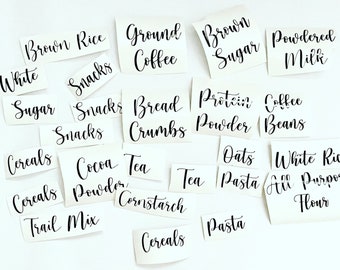 Brown Rice
Ground
Coffee
Brown
Sugar
Powdered
Milk
White
Sugar
Snacks
Snacks
Snacks
Bread
Crumbs
Protein
Powder
Coffee
Beans
Cereals
Cocoa
Powder
Tea
Tea
Oats
Pasta
White Rice
All Purpose
Flour
Cereals
Trail Mix
Cornstarch
Cereals
Pasta